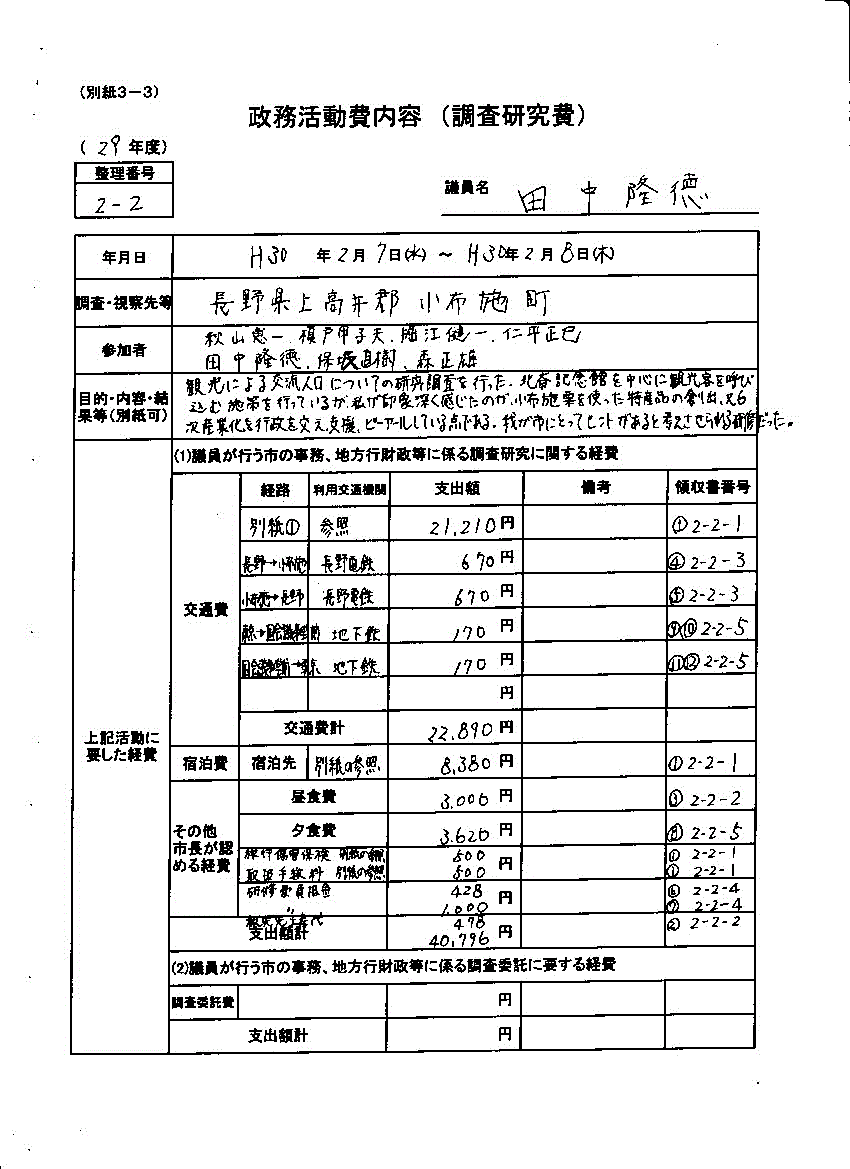 （別紙3－3）
政務活動費内容（調査研究費）
（29年度）
整理番号
2-2
議員名 田中隆徳
年月日 H30年2月7日(水)～H30年2月8日(木)
調査・視察先等 長野県上高井郡小布施町
参加者 秋山恵一、榎戸甲子夫、堀江健一、仁平正巳
田中隆徳、保坂直樹、森正雄
目的・内容・結果等（別紙可）
観光による交流人口についての研究調査を行った。北斎記念館を中心に観光客を呼び
込む施策を行っているが、私が印象深く感じたのが、小布施栗を使った特産品の創出、又6
次産業化を行政を交え支援、ピーアールしている点である。我が市にとってヒントがあると考えさせられる研修だった。
上記活動に要した経費
(1)議員が行う市の事務、地方行財政等に係る調査研究に関する経費
交通費
経路 利用交通機関 支出額 備考 領収書番号
別紙① 参照 21,210円 ①2-2-1
長野→小布施 長野電鉄 670円 ④2-2-3
小布施→長野 長野電鉄 670円 ⑤2-2-3
地下鉄 170円 ⑨⑩2-2-5
地下鉄 170円 ⑪⑫2-2-5
円
交通費計 22,890円
宿泊費 宿泊先 別紙の参照 8,380円 ①2-2-1
その他市長が認める経費
昼食費 3,000円 ③2-2-2
夕食費 3,620円 ⑧2-2-5
旅行傷害保険 別紙の参照 500 ①2-2-1
取扱手数料 別紙の参照 500円 ①2-2-1
研修費負担金 428 ⑥2-2-4
〃 1,000円 ⑦2-2-4
478 ②2-2-2
支出額計 40,796円
(2)議員が行う市の事務、地方行財政等に係る調査委託に要する経費
調査委託費 円
支出額計 円